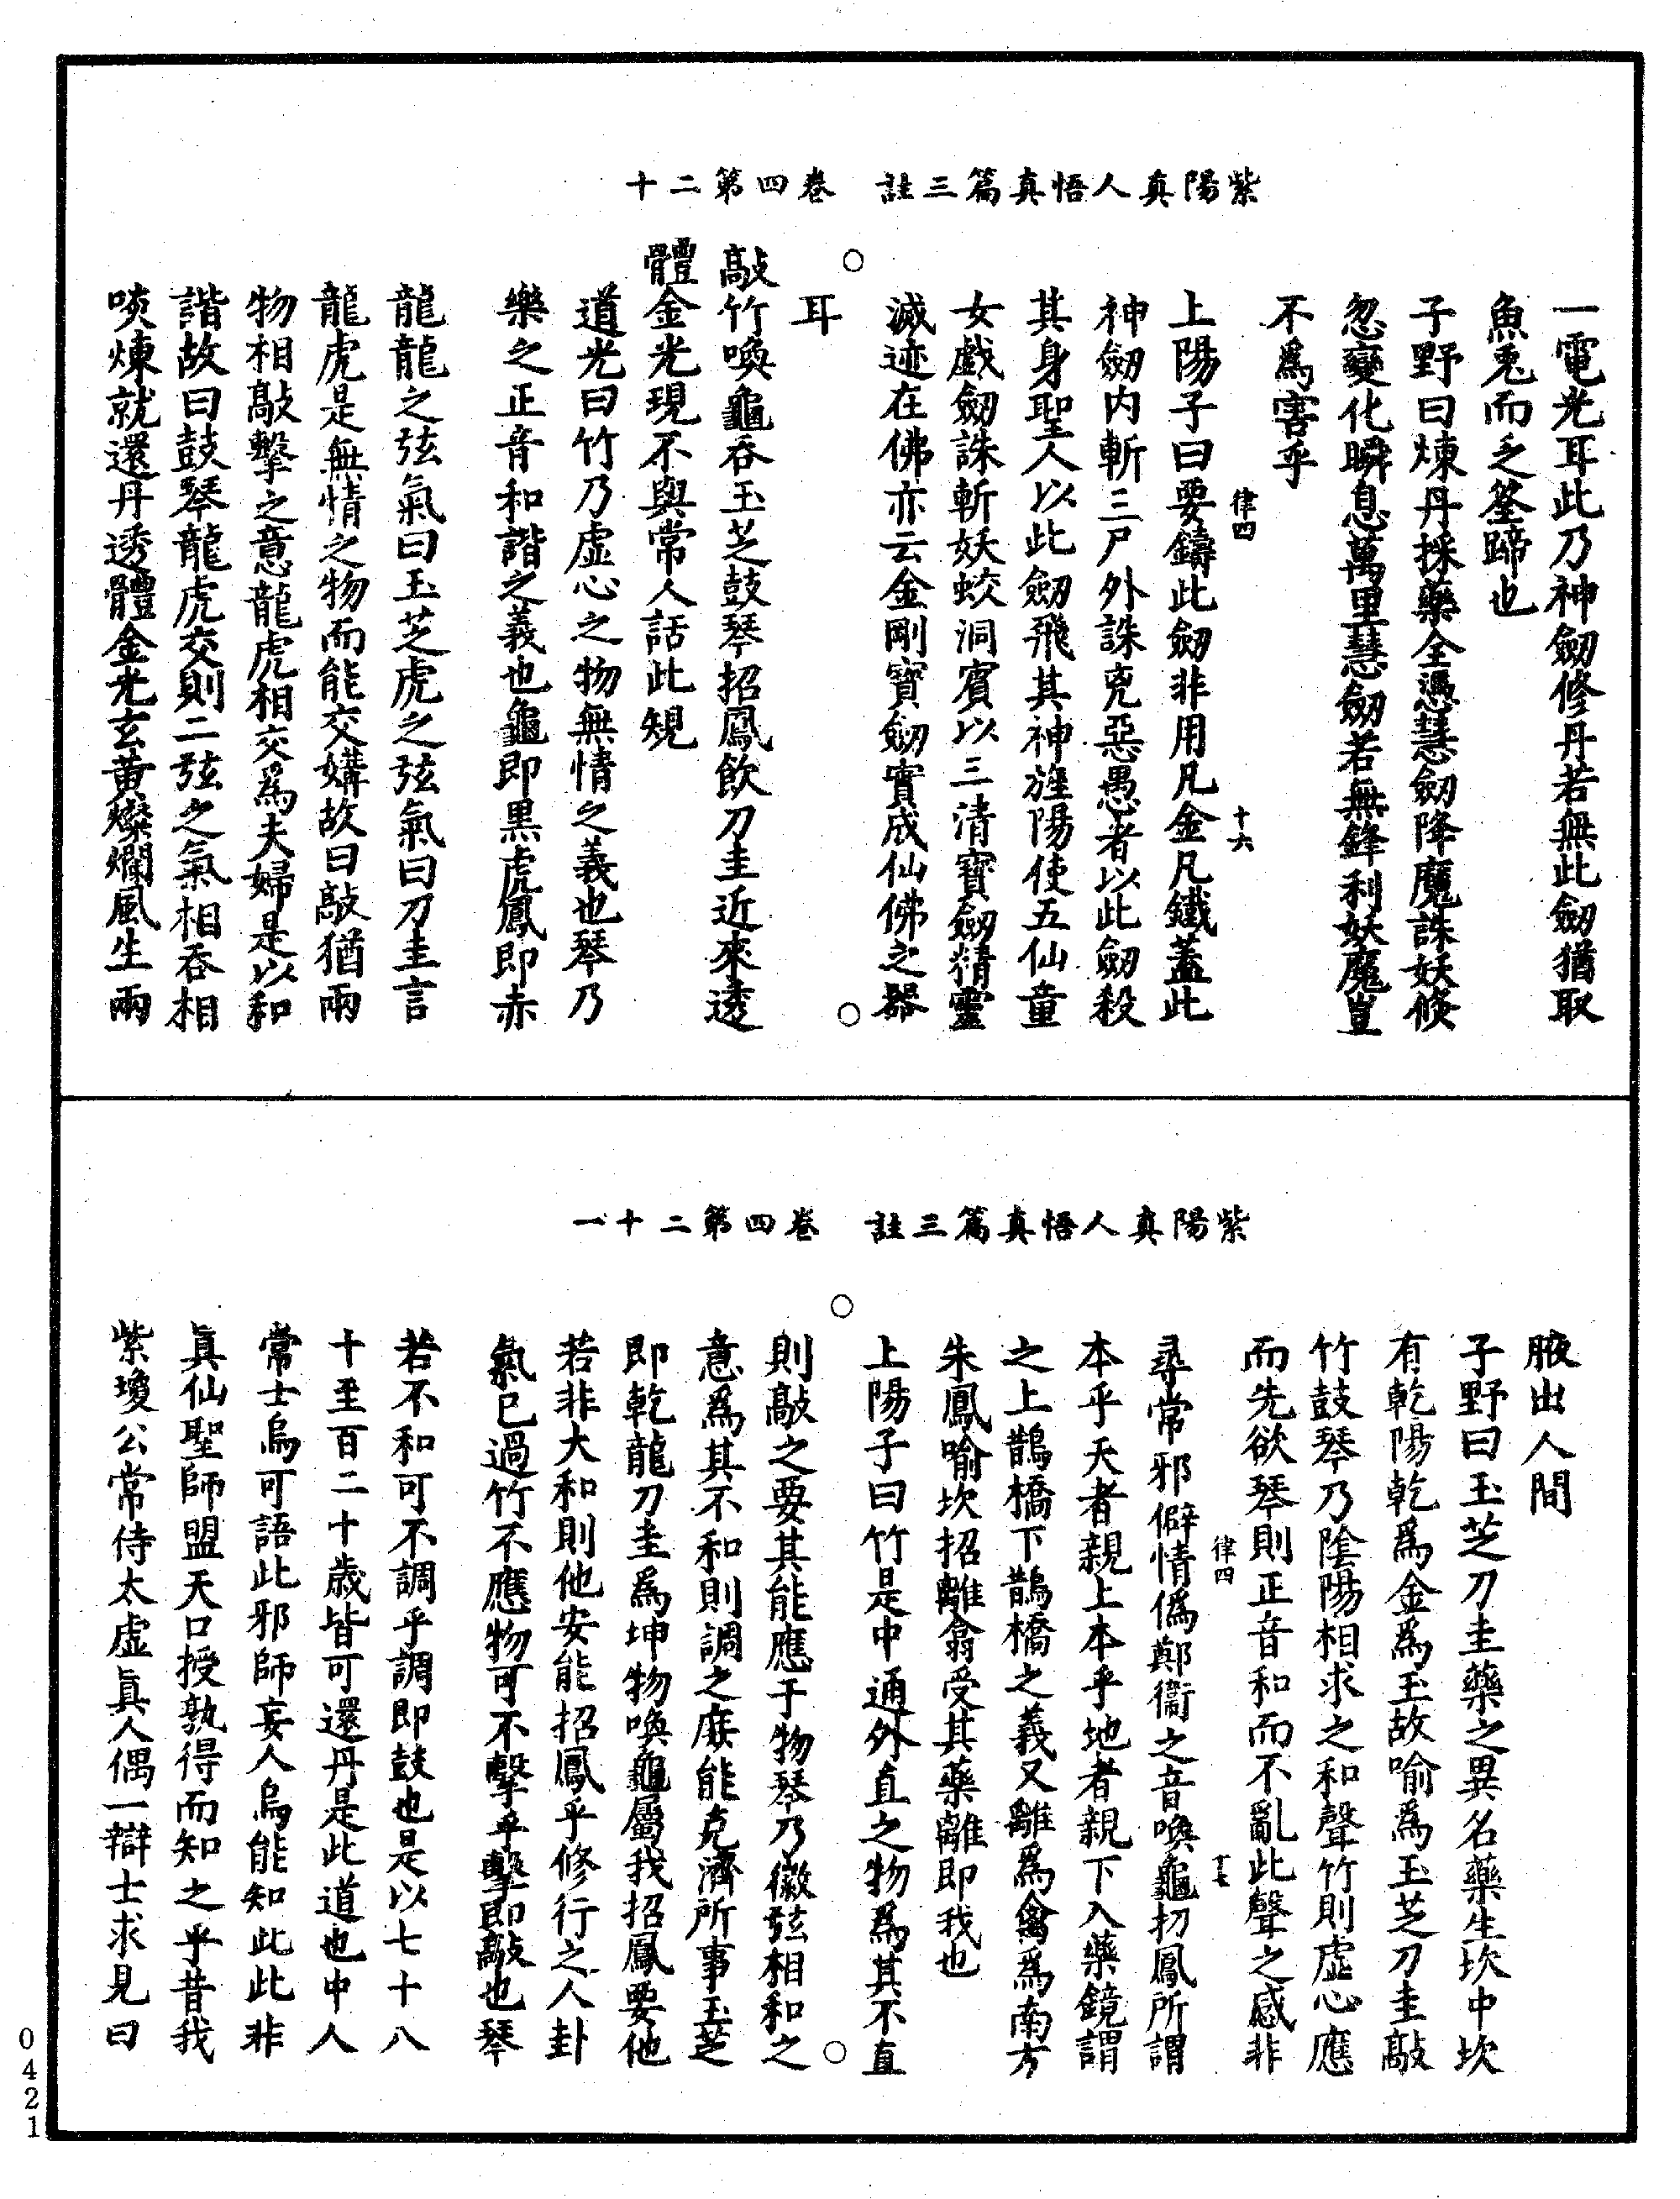 紫陽真人悟真篇三註　卷四第二十
一電光耳此乃神劒修丹若無此劒猶取
魚兎而乏筌蹄也
子野曰煉丹採藥全憑慧劒降魔誅妖倐
忽變化瞬息萬里慧劒若無鋒利妖魔豈
不爲害乎
律四　十六
上陽子曰要鑄此劒非用凡金凡鐵蓋此
神劒内斬三尸外誅兇惡愚者以此劒殺
其身聖人以此劒飛其神旌陽使五仙童
女戲劒誅斬妖蛟洞賓以三清寶劒精靈
滅迹在佛亦云金剛寶劒實成仙佛之器
耳
敲竹喚龜吞玉芝鼓琴招鳳飲刀圭近來透
體金光現不與常人話此規
道光曰竹乃虛心之物無情之義也琴乃
樂之正音和諧之義也龜即黒虎鳳即赤
龍龍之弦氣曰玉芝虎之弦氣曰刀圭言
龍虎是無情之物而能交媾故曰敲猶兩
物相敲擊之意龍虎相交爲夫婦是以和
諧故曰鼓琴龍虎交則二弦之氣相吞相
啖煉就還丹透體金光玄黃燦爛風生兩
紫陽真人悟真篇三註　卷四第二十一
腋出人間
子野曰玉芝刀圭藥之異名藥生坎中坎
有乾陽乾爲金爲玉故喻爲玉芝刀圭敲
竹鼓琴乃陰陽相求之和聲竹則虛心應
而先欲琴則正音和而不亂此聲之感非
律四　十七
尋常邪僻情僞鄭衞之音喚龜扨鳳所謂
本乎天者親上本乎地者親下入藥鏡謂
之上鵲橋下鵲橋之義又離爲禽爲南方
朱鳳喻坎招離翕受其藥離即我也
上陽子曰竹是中通外直之物爲其不直
則敲之要其能應于物琴乃徽弦相和之
意爲其不和則調之庶能克濟所事玉芝
即乾龍刀圭爲坤物喚龜屬我招鳳要他
若非大和則他安能招鳳乎修行之人卦
氣已過竹不應物可不擊乎擊即敲也琴
若不和可不調乎調即鼓也是以七十八
十至百二十歲皆可還丹是此道也中人
常士烏可語此邪師妄人烏能知此此非
眞仙聖師盟天口授孰得而知之乎昔我
紫瓊公常侍太虛眞人偶一辯士求見曰
0421